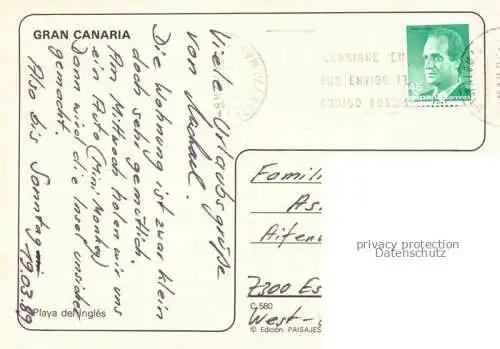 GRAN CANARIA
Viele Urlaubsgrüße
von Michael.
Die Wohnung ist zwar klein
doch sehr gemütlich.
Am Mittwoch holen wir uns
ein Auto (Mini Monkey)
Dann wird die Insel unsicher
gemacht.
Also bis Sonntag
19.03.89
Playa del Inglés
CONSIGNE EN
SUS ENVIOS EL
CODIGO POSTAL
45
Famili
As
Aifen
7300 Es
West-
C. 580
© Edición: PAISAJES
privacy protection
Datenschutz